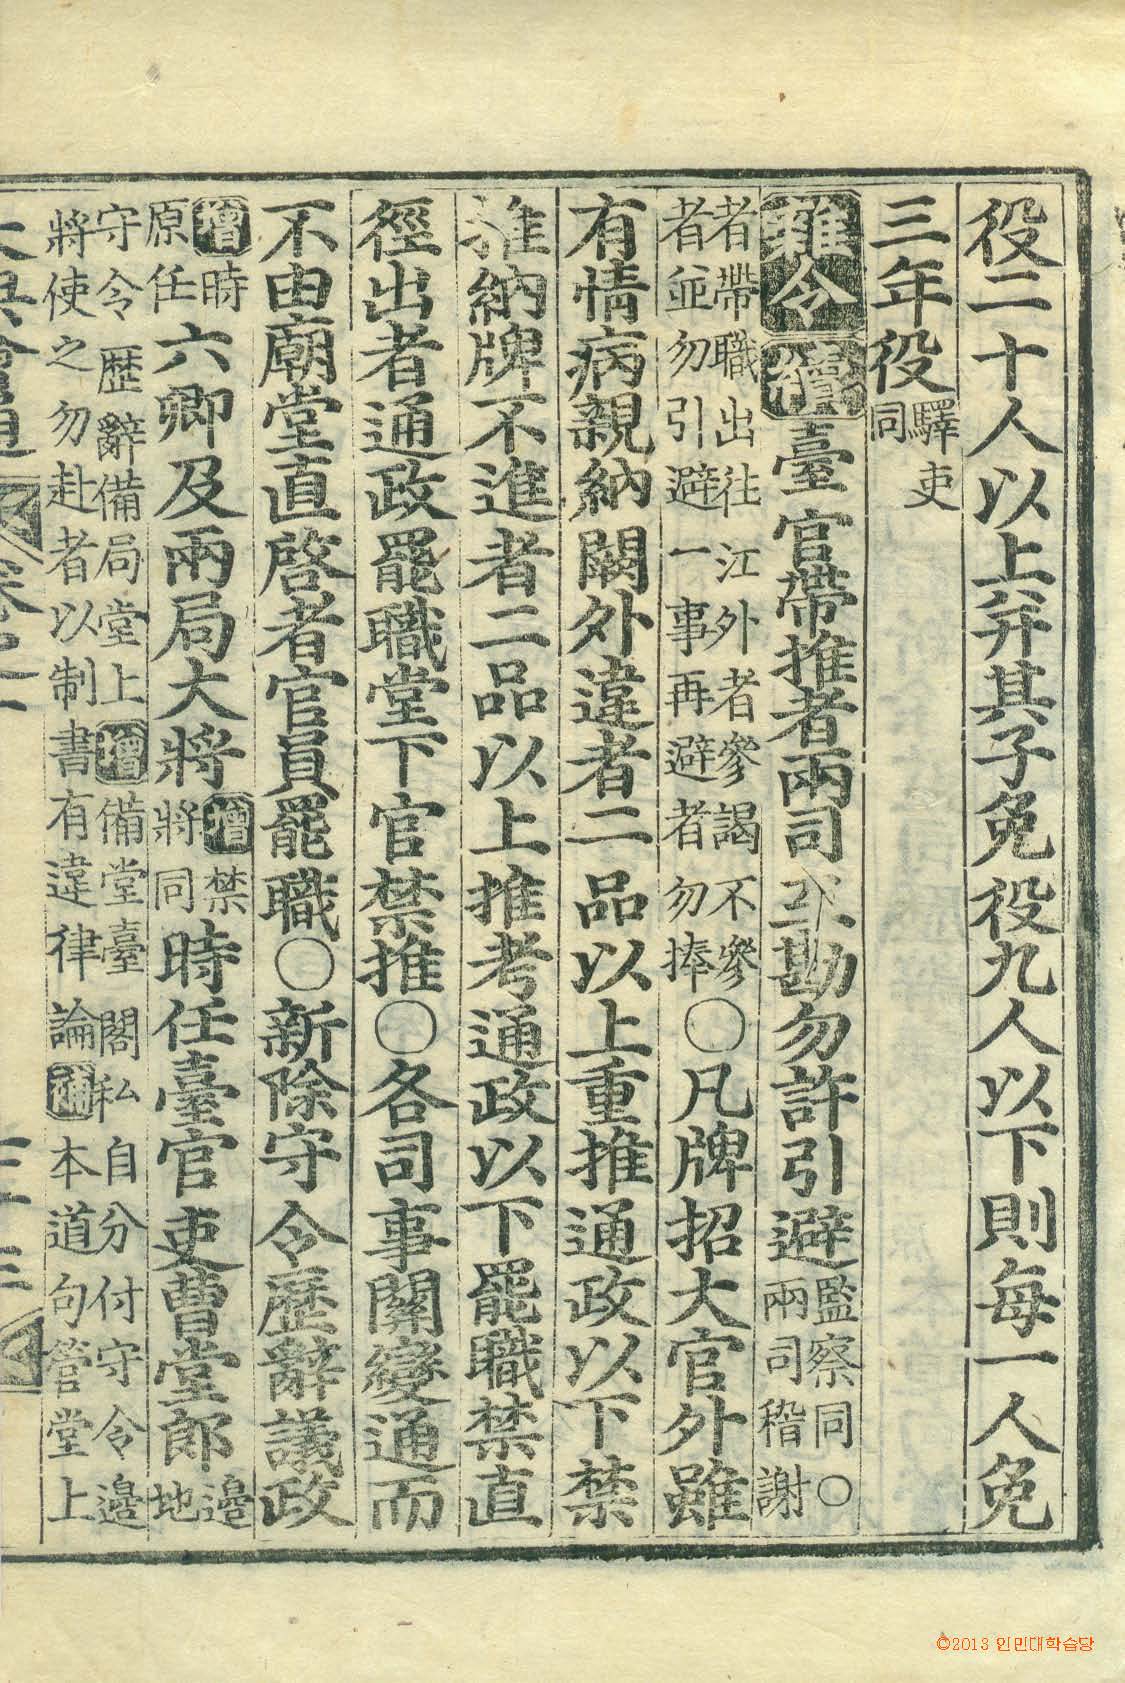 役二十人以上弁其子免役九人以下則每一人免
三年役驛吏同
雜令續臺官帶推者兩司勘勿許引避監察同○兩司稽謝
者帶職出往江外者參謁不參者並勿引避一事再避者勿捧○凡牌招大官外雖
有情病親納闕外違者二品以上重推通政以下禁
推納牌不進者二品以上推考通政以下罷職禁直
徑出者通政罷職堂下官禁推○各司事關變通而
不由廟堂直啓者官員罷職○新除守令歷辭議政
增時原任六卿及兩局大將增禁將同時任臺官吏曹堂郎邊地
守令歷辭備局堂上增備堂臺閣私自分付守令邊將使之勿赴者以制書有違律論補本道句管堂上
大典會通 卷之一
©2013 인민대학습당